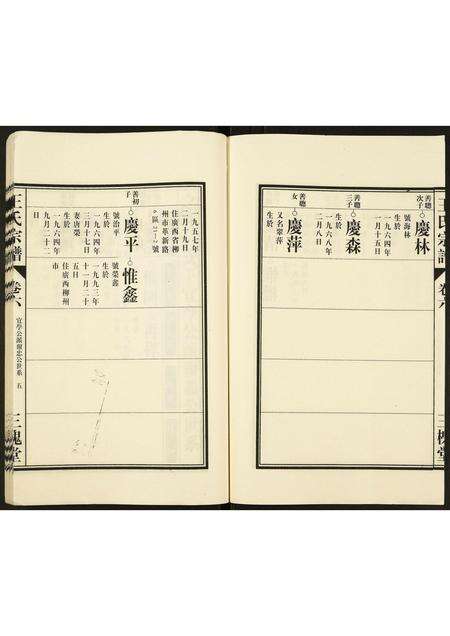 王氏宗譜
卷六
三槐堂
善聰
次子
慶林
號海林
生於
一九六四年
一月十五日
善聰
三子
慶森
生於
一九六八年
二月八日
善聰
女
慶萍
又名翠萍
生於
一九五七年
二月十九日
住廣西省柳
州市革新路
善初
子
慶平
號治平
生於
一九六四年
三月十七日
妻唐榮
生於
一九六四年
九月二十二
日
惟鑫
號榮鑫
生於
一九九三年
十一月二十
五日
住廣西柳州
市
王氏宗譜
卷六
五
三槐堂